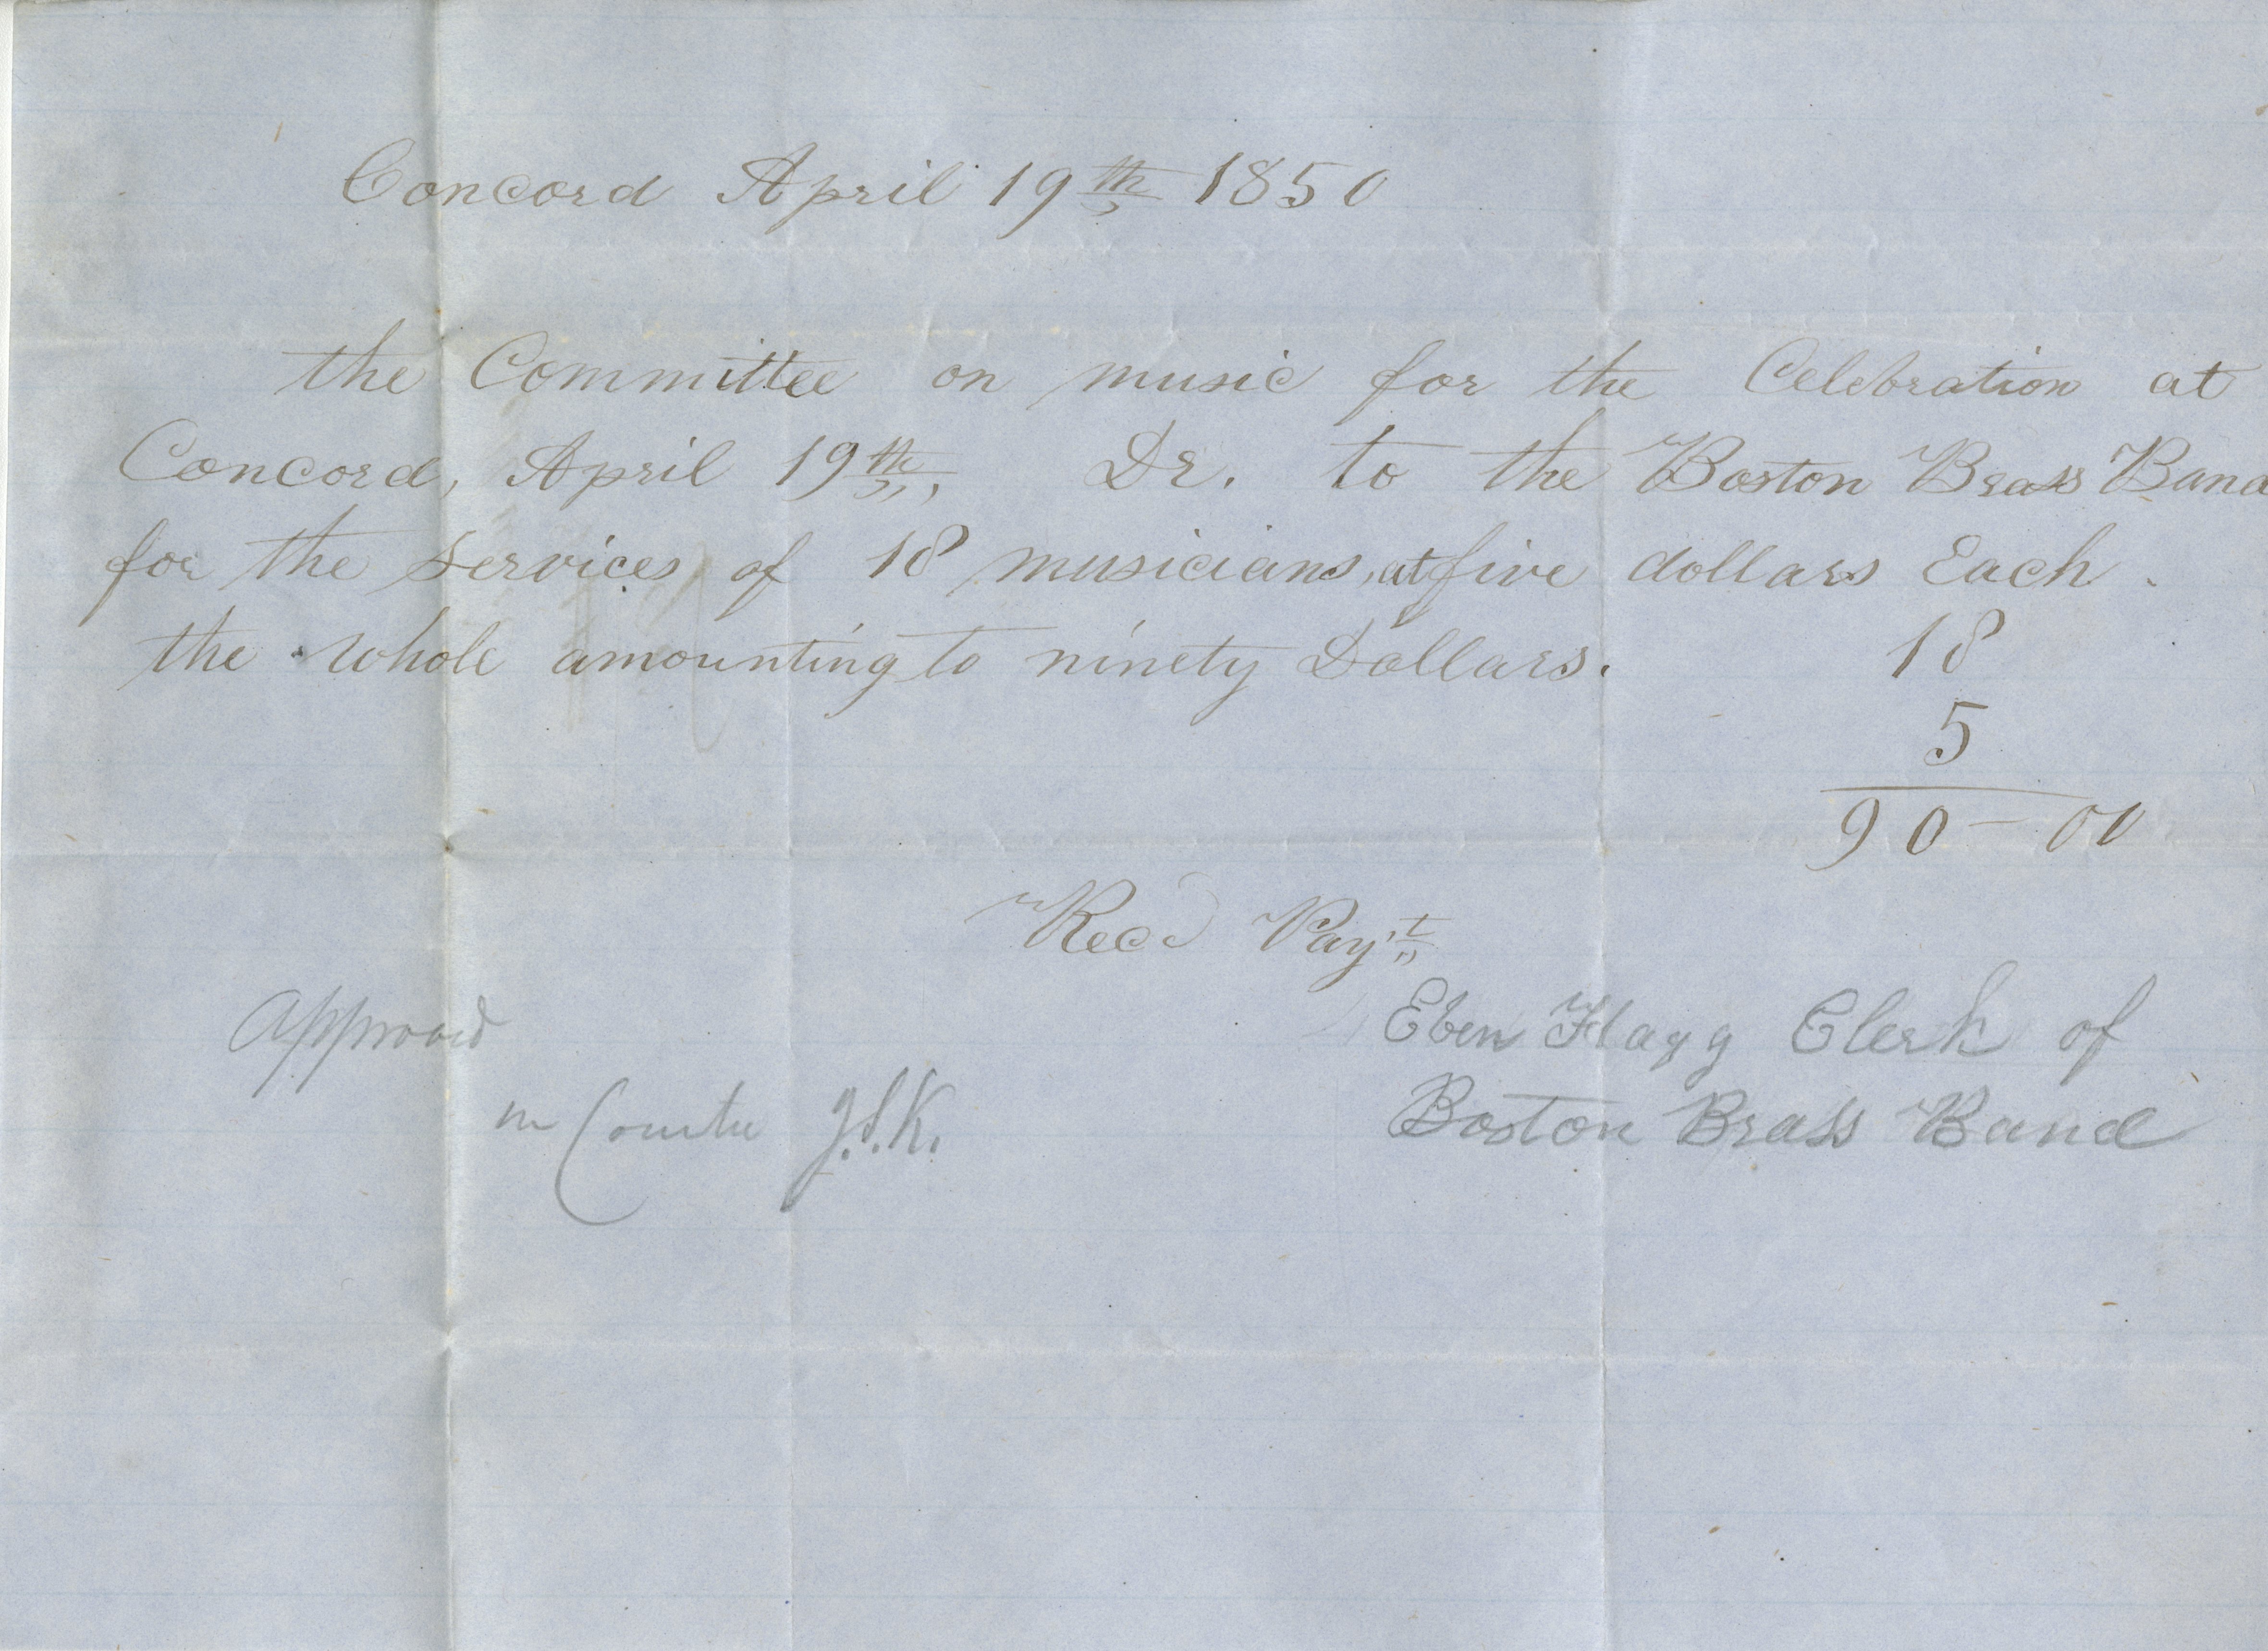 Concord April 19th 1850
the Committee on music for the Celebration at
Concord, April 19th, Dr. to the Boston Brass Band
for the services of 18 musicians, at five dollars Each.
the whole amounting to ninety Dollars. 18
5
90 - 00
Recd Payt
Approved
Eben Flagg Clerk of
J.S.K.
Boston Brass Band